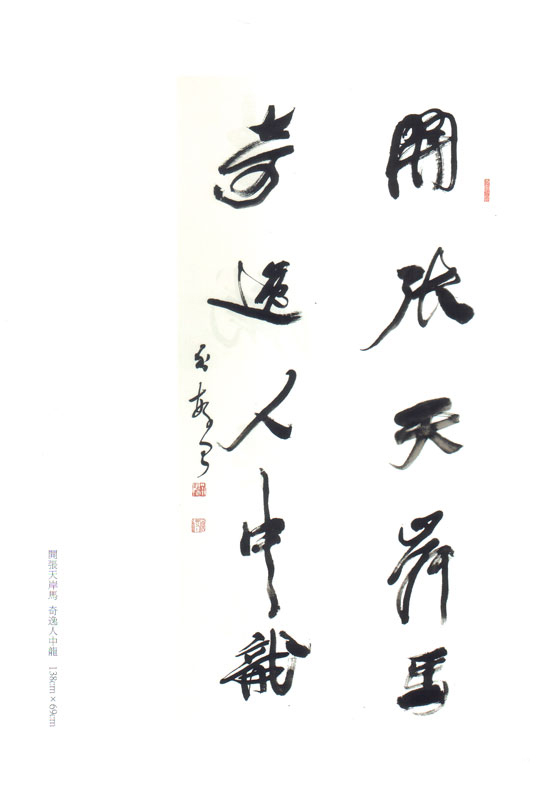 開張天岸馬
奇逸人中龍
開張天岸馬 奇逸人中龍 138cm×69cm